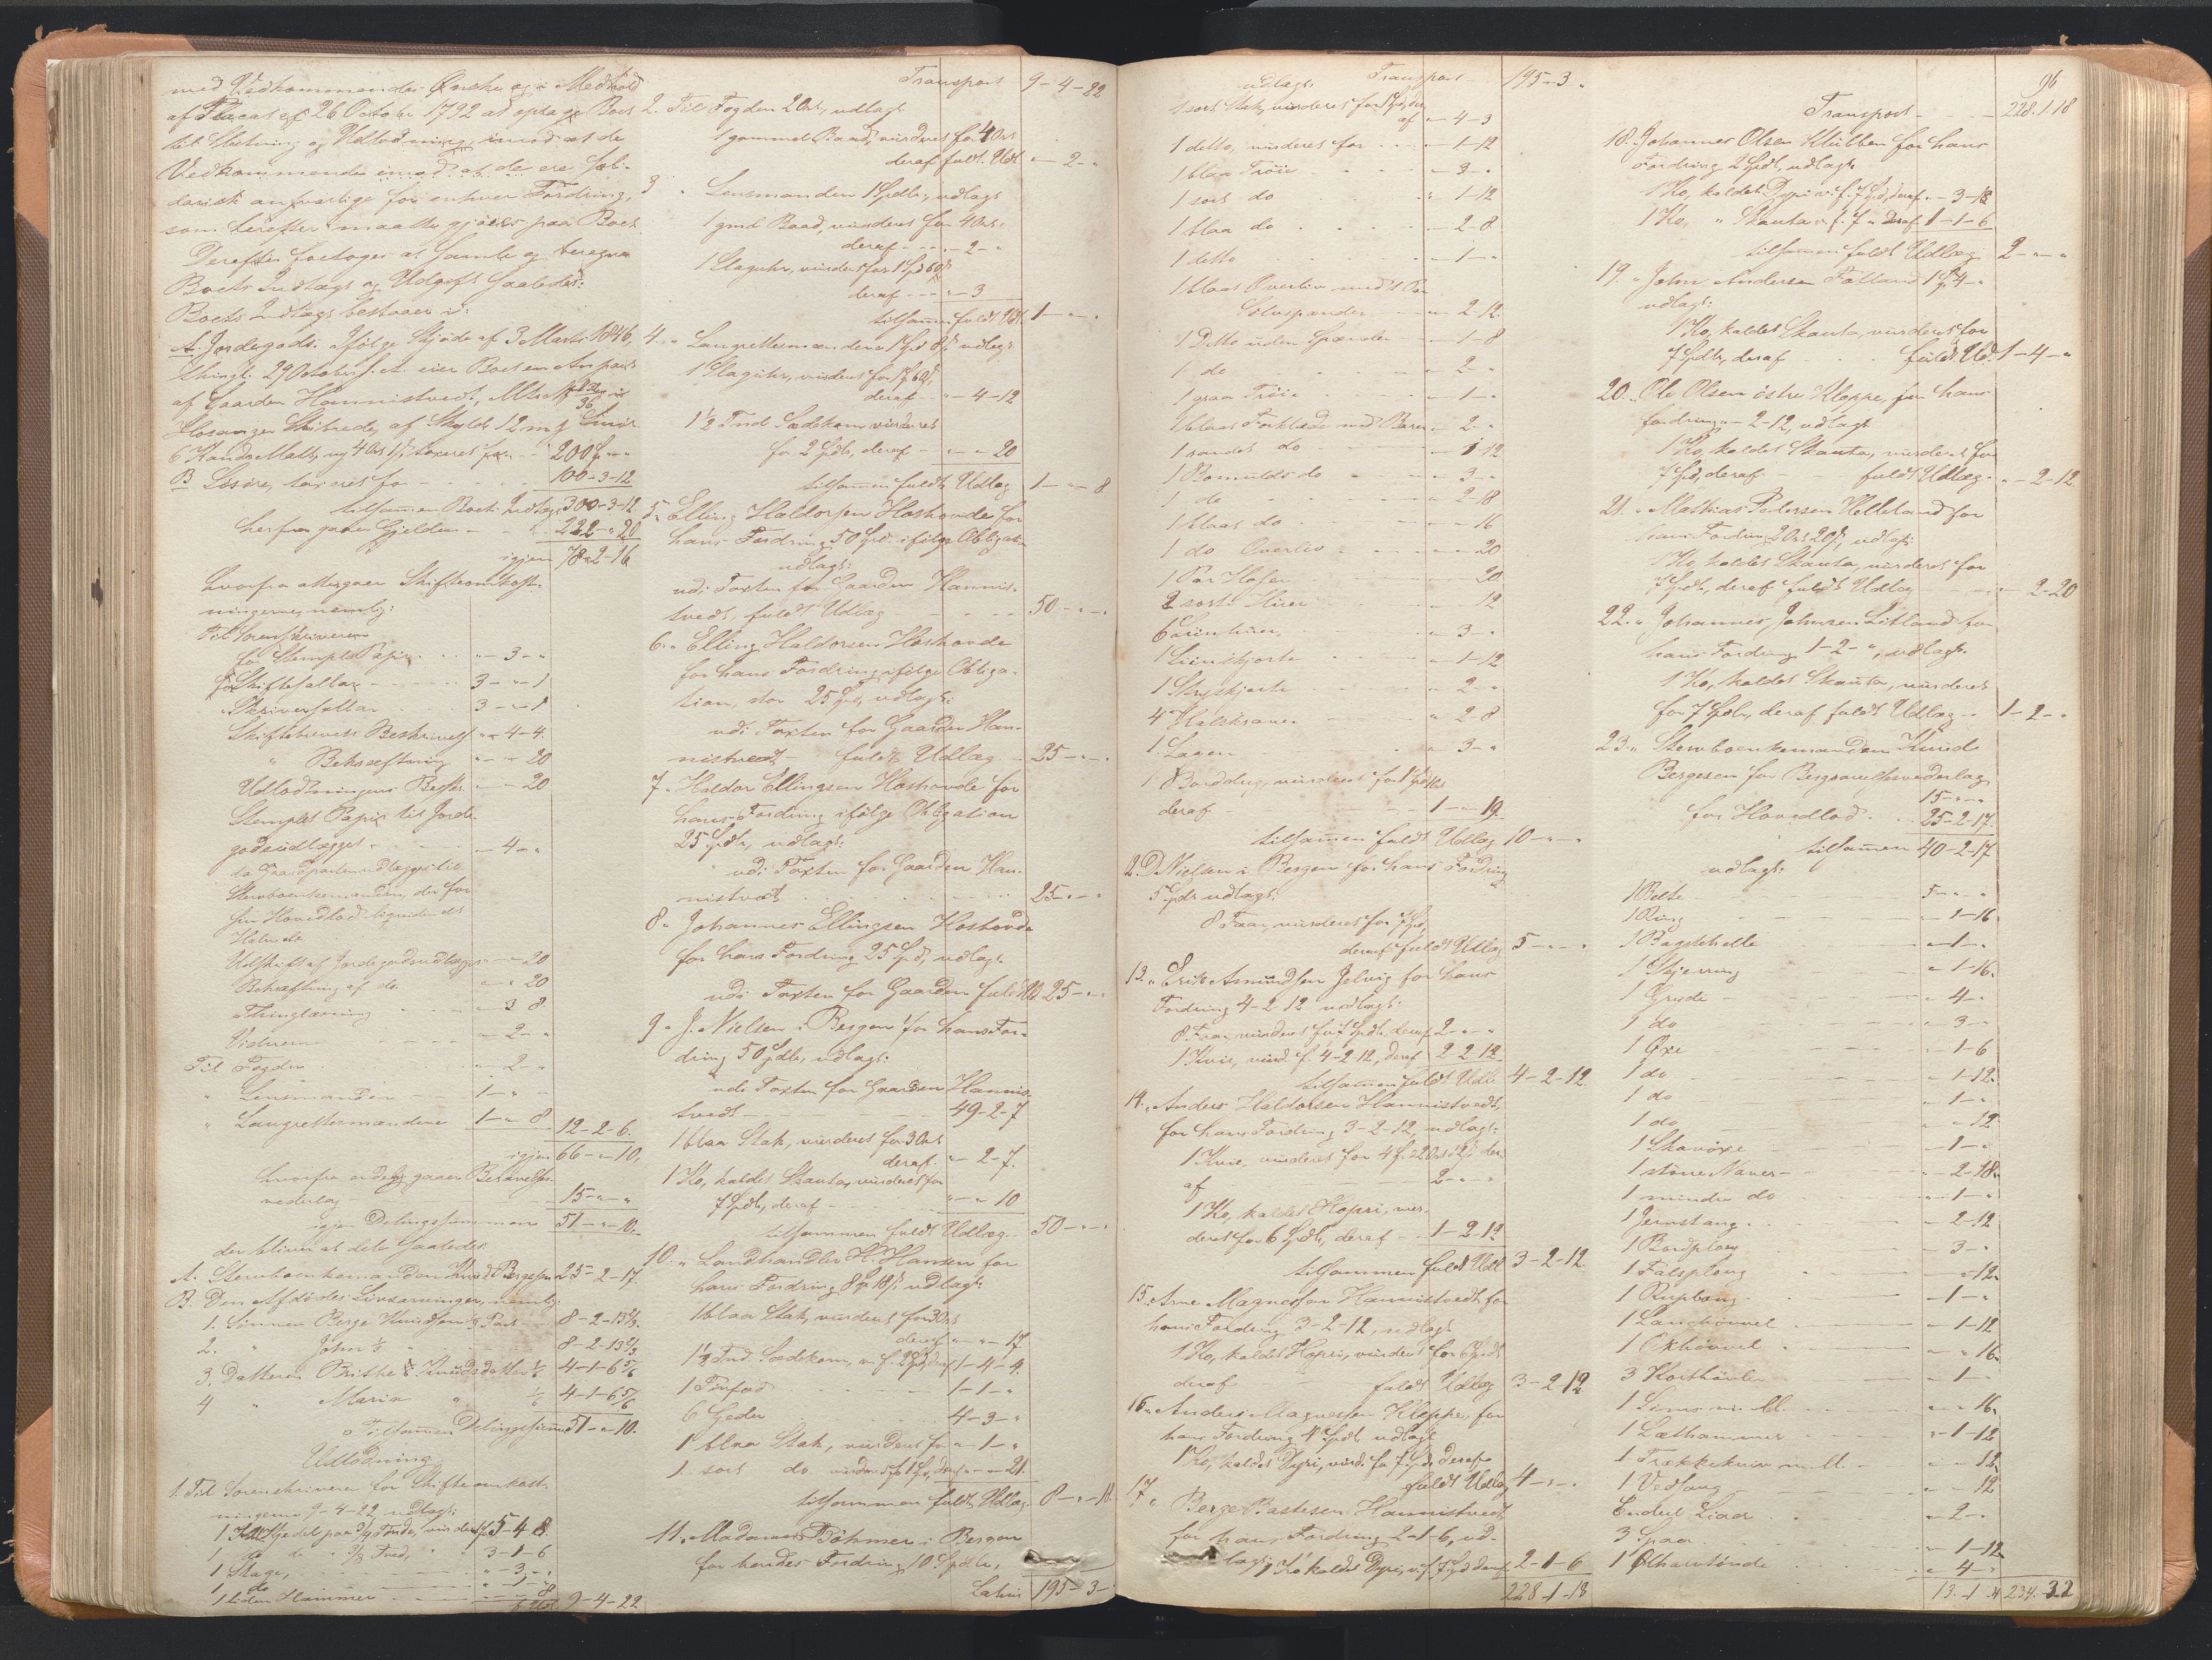 med Vedkommendes Ønske og i Medhold
af Placat af 26 October 1792 at optage Boet
til Slutning og Udlodning, imod at de
Vedkommende imod at de ere soli-
darisk ansvarlige for enhver Fordring,
som herefter maatte gjøres paa Boet
Derefter foretoges at samle og beregne
Boets Indtægt og Udgift saaledes:
Boets Indtægt bestaaer i:
A. Jordegods. Ifølge Skjøde af 3 Marts 1846,
thingl. 29 October s. A. eier Boet en Anpart
af Gaarden Hannistvedt, Mtr No
Hosanger Skibrede, af Skyld 12 mg Smør
6 Kands Malt, ny 4 Ort 1 ß, taxeret for - 200 " "
B Løsøre, taxeret for - 100-3-12
tilsammen Boets Indtægt 300-3-12
herfra gaaer Gjelden - 222-"-20
igjen 78-2-16
hvorfra attergaaer Skifteomkost-
ningerne, nemlig:
Til Sorenskriveren
for Stemplet Papir - "-3-"
for Skiftesallar - 3-"-1
Skriversallar - 3-"-8
Skiftebrevets Beskrivelse "-4-4
" Bekræftning "-"-20
Udlodningens Beskr. "-"-20
Stemplet Papir til Jorde-
godsudlægget - "-4-"
da Gaardparten udlægges til
Stervboenkemanden, der for
sin Hovedlod ligner det
Halve de
Udskrift af Jordegodsudlægget "-"-20
Bekræftning af do. "-"-20
Thinglæsning "-3 8
Vidnerne "-2-"
Til Fogden "-2-"
" Lensmanden 1-"-"
" Laugrettesmændene 1-"-8 12-2-6.
igjen 66-"-10.
hvorfra endelig gaaer Begravelses-
vederlag 15-"-"
igjen Delingssummen 51-"-10.
der bliver at dele saaledes
A. Stervboenkemanden Knud Bergesen 25-2-17.
B. Den Afdødes Livsarvinger, nemlig:
1. Sønnen Berge Knudsen ⅓ Part 8-2-13⅔.
2. " John ⅓ " 8-2-13⅔
3. Datteren Brithe Knudsdatter ⅙ 4-1-6⅚
4 " Marie " ⅙ 4-1-6⅚
Tilsammen Delingssum 51-"-10.
Udlodning
1. Til Sorenskriveren for Skifteomkost-
ningerne 9-4-22 udlagt:
5-4 8.
3-1-6
1 Stage, "-3-"
1 do "-1-"
1 liden Hammer "-"-8
9-4-22
Transport 9-4-22
2. Til Fogden 2 Ort, udlagt
1 gammel Baad, vurderet for 4 Ort
deraf fuldt Udl. "-2-"
3 " Lensmanden 1 Spdlr, udlagt
1 gml. Baad, vurderet for 4 Ort.
deraf - "-2-"
1 Slaguhr, vurderet for 1 Spd 60 ß
deraf - "-3
tilsammen fuldt Udl. 1-"-"
4. " Laugrettesmændene 1 Spd 8 ß udlagt
1 Slaguhr, vurderet for 1 Spd 60 ß,
deraf - "-4-12
1½ Tnd Sædekorn vurderet
for 2 Spdlr, deraf "-"-20
tilsammen fuldt Udlæg 1-"-8
5. Elling Haldorsen Hoshovde for
hans Fordring 50 Spd. ifølge Obligation
udlagt:
udi Taxten for Gaarden Hannis-
tvedt, fuldt Udlæg 50-"-"
6. " Elling Haldorsen Hoshovde
for hans Fordring ifølge Obliga-
tion, stor 25 Spd, udlagt:
udi Taxten for Gaarden Han-
nistvedt - fuldt Udlæg 25-"-"
7. " Haldor Ellingsen Hoshovde for
hans Fordring ifølge Obligation
25 Spdlr, udlagt:
udi Taxten for Gaarden Han-
nistvedt 25-"-"
8. " Johannes Ellingsen Hoshovde
for hans Fordring 25 Spd, udlagt
udi Taxten for Gaarden fuldt Ud. 25-"-"
9. " J. Nielsen i Bergen for hans For-
dring 50 Spdlr, udlagt:
udi Taxten for Gaarden Hannis-
tvedt - 49-2-7
1 blaa Stak, vurderet for 3 Ort
deraf "-2-7.
1 Ko, kaldet Skauta, vurderet for
7 Spdlr, deraf - "-"-10
tilsammen fuldt Udlæg 50-"-"
10. " Landhandler H. Hansen for
hans Fordring 8 Sp 18 ß. udlagt:
1 blaa Stak, vurderet for 3 Ort
deraf "-"-17
1½ Tnd. Sædekorn, v. f. 2 Spd, deraf 1-4-4.
1-1-"
6 Geder 4-3-"
1 blaa Stak, vurderet for "-1-"
1 sort do. vurderet for 1 Sp, deraf "-"-21.
tilsammen fuldt Udlæg 8-"-18
11. " Madame Böhmer i Bergen
for hendes Fordring 10 Spdlr,
Latus 195-3-"
udlagt. Transport 195-3-"
1 sort Stak, vurderet for 1 Spd, der
af "-4-3
1 detto, vurderet for "-1-12
1 blaa Trøie "-3-"
1 sort do "-1-12
1 blaa do "-2-8
1 detto "-1-"
1 blaat Overliv med 1 Par
Sølvspænder "-2-12.
1 Ditto uden Spænder "-1-8
1 do "-2-"
1 graa Trøie "-1-"
1 blaat Forklæde med "-2-"
1 randet do "-1-12
1 Bomulds do "-3-"
1 do "-2-18
1 blaat do "-"-16
1 do Overliv "-"-20
1 Par Hoser "-"-20.
2 sort Huer "-"-12
6 "-3-"
1 Linskjorte "-1-12
1 Stryskjorte "-2-"
4 "-2-8
1 Lagen "-3-"
1 Borddug, vurderet for
deraf 1-"-19.
tilsammen fuldt Udlæg 10-"-"
12. D. Nielsen i Bergen for hans Fordring
5 Spdr udlagt:
8 Faar, vurderet for 7 Spd,
deraf fuldt Udlæg 5-"-"
13. " Erik Amundsen Jelvig for hans
Fordring 4-2-12 udlagt:
8 Faar, vurderet for 7 Spdlr, deraf 2-"-"
1 Kvie, vurd. f. 4-2-12, deraf 2-2-12.
tilsammen fuldt Udl. 4-2-12.
14. " Anders Haldorsen Hannistvedt,
for hans Fordring 3-2-12, udlagt:
1 Kvie, vurderet for 4 Sp 2 Ort 12 ß, der-
af 2-"-"
1 Ko, kaldet Hopri, vur-
deret for 6 Spdlr, deraf 1-2-12
tilsammen fuldt Udl. 3-2-12.
15. Arne Magnesen Hannistvedt for
hans Fordring 3-2-12, udlagt
1 Ko, kaldet Hopri, vurderet for 6 Spdlr
deraf fuldt Udlæg 3-2-12
16. " Anders Magnesen Kleppe, for
hans Fordring 4 Spdlr udlagt
1 Ko, kaldet Dyri, vurd. for 7 Spd, deraf
fuldt Udlæg 4-"-"
17 " Berge Bastesen Hannistvedt
for hans Fordring 2-1-6, ud-
lagt, 1 Ko kaldet Dyri, v. f. 7 Spd deraf 2-1-6
228-1-18
96
Transport 228.1.18
18. Johannes Olsen Klubben for hans
Fordring 2 Spdl, udlagt
1 Ko, kaldet Dyri v. f. 7 Spd, deraf "-3-18
1 Ko, " Skauta v. f. 7 " deraf 1-1-6
tilsammen fuldt Udlæg 2-"-"
19. " John Andersen Fotland 1 Sp 4-"
udlagt:
1 Ko, kaldet Skauta, vurderet for
7 Spdlr, deraf fuldt Ud. 1-4-"
20. " Ole Olsen østre Kleppe, for hans
fordring "-2-12, udlagt
1 Ko, kaldet Skauta, vurderet for
7 Spd, deraf - fuldt Udlæg "-2-12.
21. " Mathias Pedersen Helleland for
hans Fordring 2 Ort 20 ß, udlagt:
1 Ko, kaldet Skauta, vurderet for
7 Spdlr, deraf fuldt Udlæg "-2-20
22. " Johannes Johnsen Litland for
hans Fordring 1-2-", udlagt.
1 Ko, kaldet Skauta, vurderet
for 7 Spdlr, deraf fuldt Udlæg 1-2-"
23. " Stervboenkemanden Knud
Bergesen for Begravelsesvederlag
15-"-"
for Hovedlod 25-2-17
tilsammen 40-2-17
udlagt:
1 Belte 5-"-"
1 Ring "-1-16
1 "-1-"
1 Skjerring "-1-16.
1 Gryde "-4-"
1 do "-3-"
1 Øxe "-1-6
1 do "-1-12.
1 do "-1-"
1 do "-"-12
1 Skavøxe "-1-"
1 større Naver "-2-18.
1 mindre do "-1-"
1 Jernstang "-2-12
1 Bordploug "-3-"
1 Falsploug "-"-12.
1 "-1-"
1 Langhøvvel "-1-12
1 Okhøvvel "-"-16.
3 "-1-"
1 "-"-16.
1 Læthammer "-1-12
1 Trækkekniv m. M. "-"-12.
1 Vedsaug "-"-12
Endeel Liaer "-2-"
3 Spaa "-1-12
1 "-4-"
13.-1-4 234.-3.2